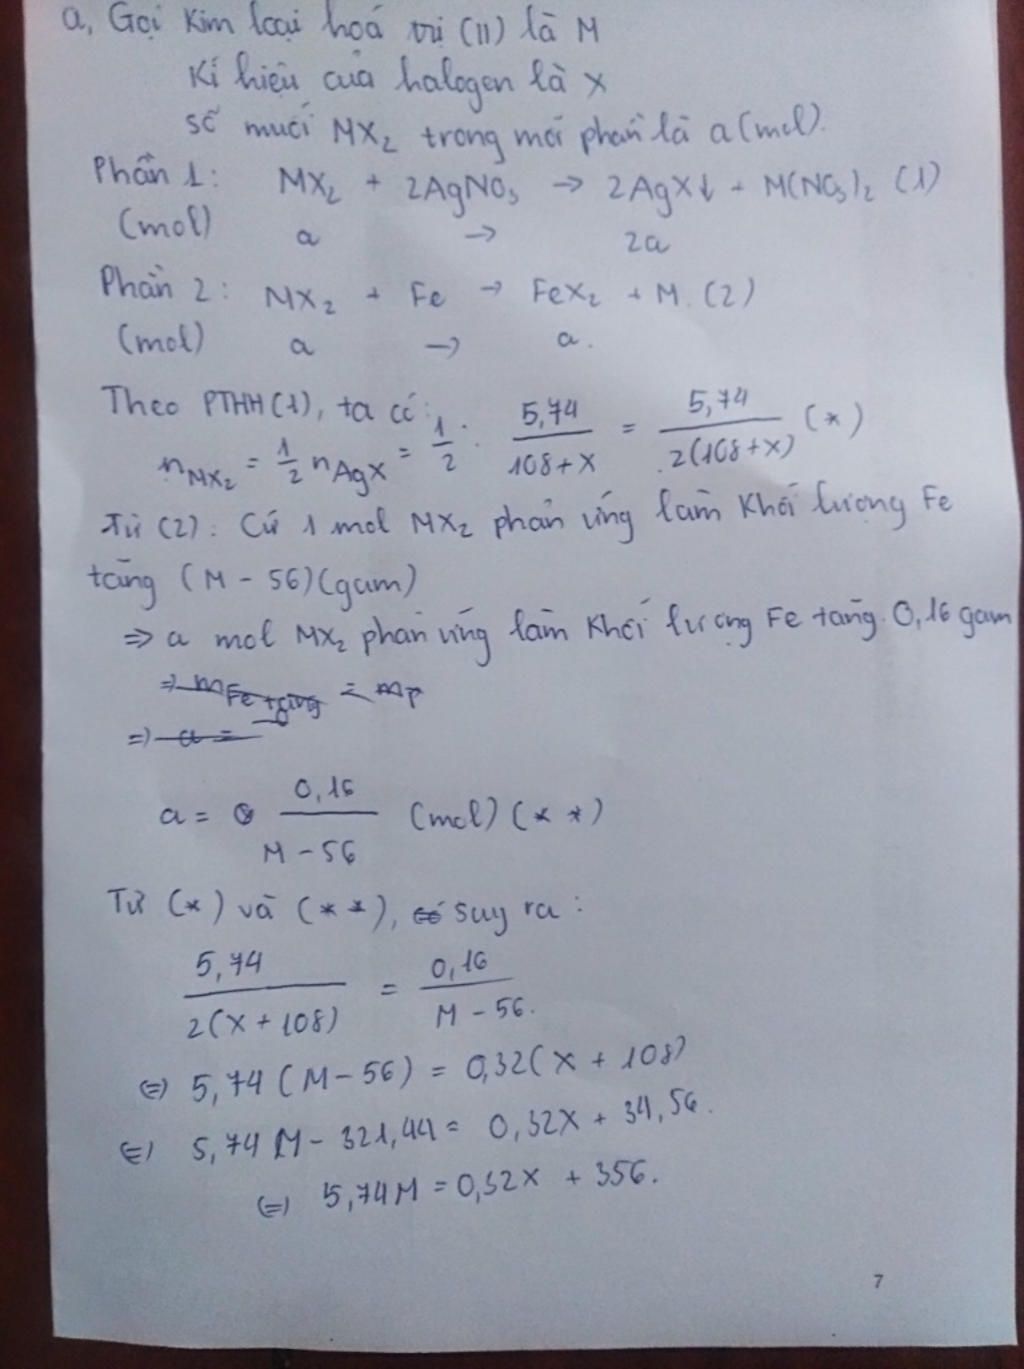 a, Gọi kim loại hoá trị (II) là M
Kí hiệu của halogen là X
số muối MX₂ trong mỗi phần là a (mol).
Phần 1: MX₂ + 2AgNO₃ → 2AgX↓ + M(NO₃)₂ (1)
(mol) a → 2a
Phần 2: MX₂ + Fe → FeX₂ + M. (2)
(mol) a → a.
Theo PTHH(1), ta có:
n_MX₂ = 1/2 n_AgX = 1/2 . 5,74/(108+X) = 5,74/2(108+X) (*)
Từ (2): Cứ 1 mol MX₂ phản ứng làm khối lượng Fe
tăng (M - 56)(gam)
⇒ a mol MX₂ phản ứng làm khối lượng Fe tăng 0,16 gam
⇒ m_Fe tăng = mp
⇒ a =
a = 0,16/(M - 56) (mol) (* *)
Từ (*) và (* *), có suy ra :
5,74/2(X + 108) = 0,16/(M - 56.)
(=) 5,74 (M - 56) = 0,32(X + 108)
(=) 5,74 M - 321,44 = 0,32X + 34,56.
(=) 5,74M = 0,32X + 356.
7